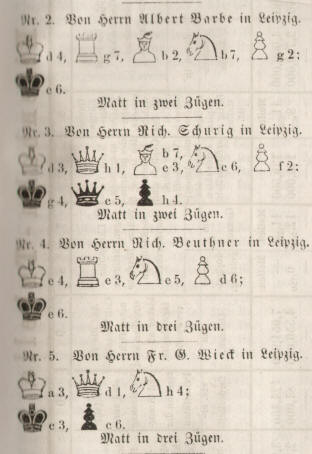 Nr. 2. Von Herrn Albert Barbe in Leipzig.
d 4, g 7, b 2, b 7, g 2;
e 6.
Matt in zwei Zügen.
Nr. 3. Von Herrn Rich. Schurig in Leipzig.
d 3, h 1, b 7, e 3, c 6, f 2;
g 4, e 5, h 4.
Matt in zwei Zügen.
Nr. 4. Von Herrn Rich. Beuthner in Leipzig.
e 4, e 3, e 5, d 6;
e 6.
Matt in drei Zügen.
Nr. 5. Von Herrn Fr. G. Wieck in Leipzig.
a 3, d 1, h 4;
c 3, c 6.
Matt in drei Zügen.